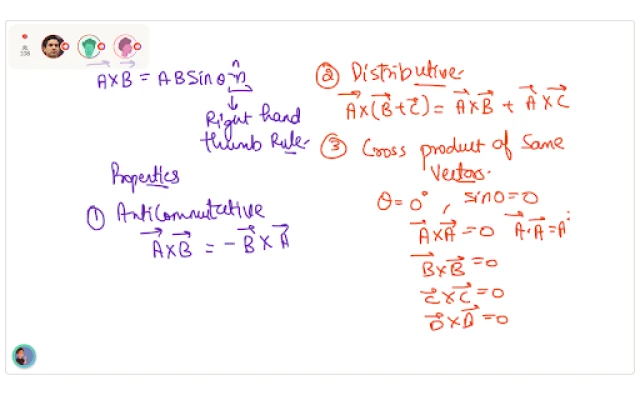 A⃗×B⃗ = AB Sinθ n̂
Right hand
thumb Rule.
Properties
① Anticommutative
A⃗×B⃗ = -B⃗×A⃗
② Distributive
A⃗×(B⃗+C⃗) = A⃗×B⃗ + A⃗×C⃗
③ Cross product of Same
Vectors.
θ=0°, sin0=0
A⃗×A⃗=0 A⃗·A⃗=A
B⃗×B⃗=0
C⃗×C⃗=0
D⃗×D⃗=0